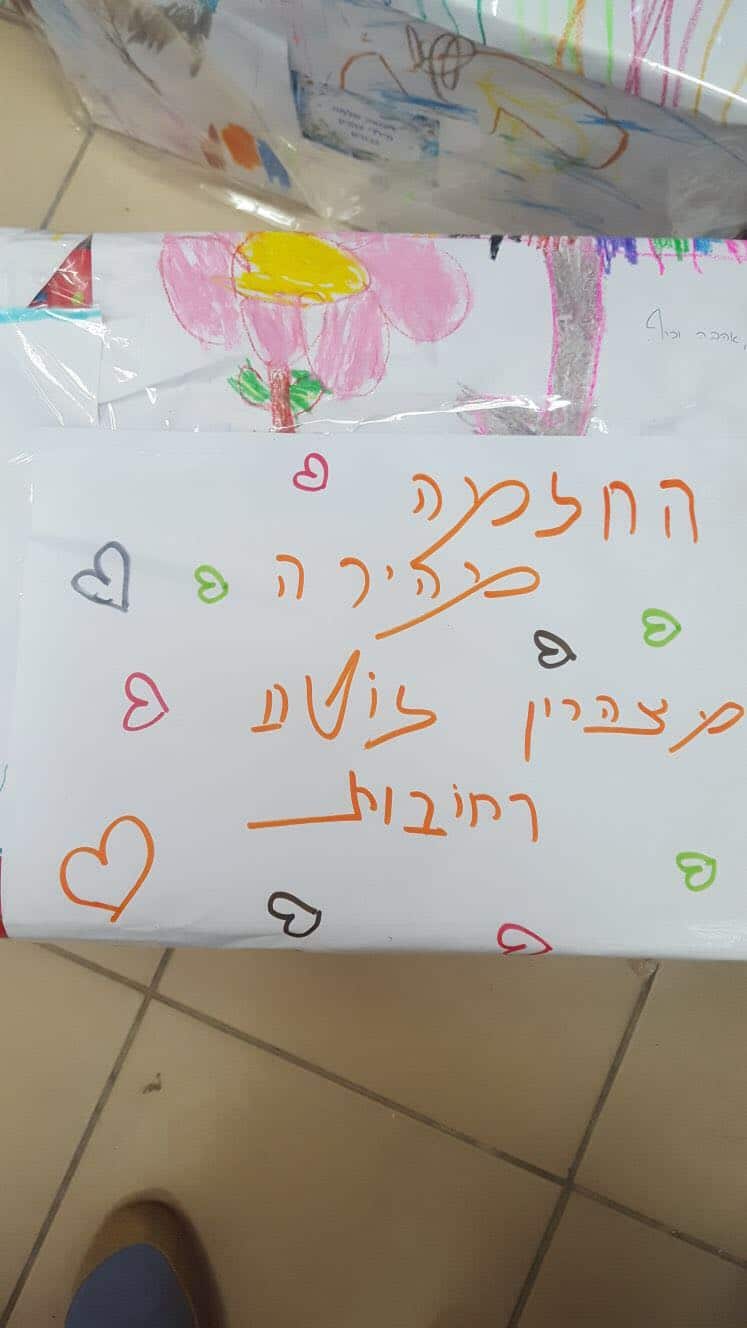 אהבה וכיף
החלמה
מהירה
מצהרון לוטם
רחובות